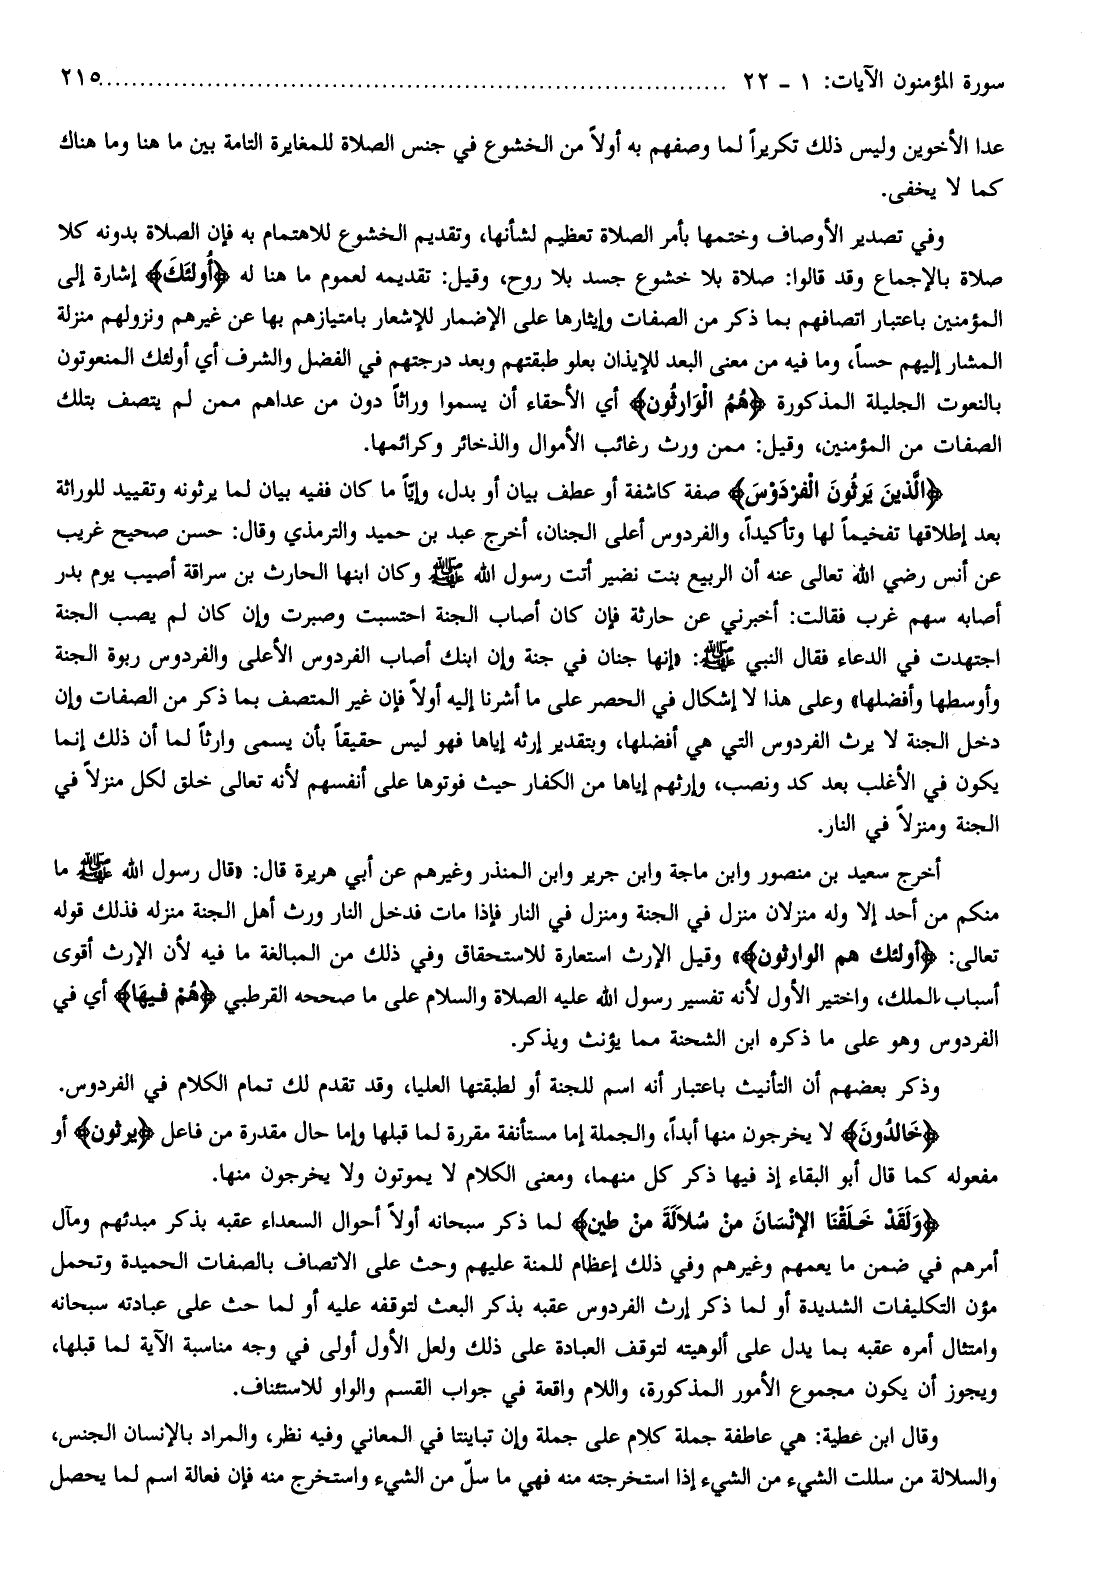 سورة المؤمنون الآيات: ١ - ٢٢ ........................................................................ ٢١٥
عدا الأخوين وليس ذلك تكريراً لما وصفهم به أولاً من الخشوع في جنس الصلاة للمغايرة التامة بين ما هنا وما هناك
كما لا يخفى.
وفي تصدير الأوصاف وختمها بأمر الصلاة تعظيم لشأنها، وتقديم الخشوع للاهتمام به فإن الصلاة بدونه كلا
صلاة بالإجماع وقد قالوا: صلاة بلا خشوع جسد بلا روح، وقيل: تقديمه لعموم ما هنا له ﴿أُولئكَ﴾ إشارة إلى
المؤمنين باعتبار اتصافهم بما ذكر من الصفات وإيثارها على الإضمار للإشعار بامتيازهم بها عن غيرهم ونزولهم منزلة
المشار إليهم حساً، وما فيه من معنى البعد للإيذان بعلو طبقتهم وبعد درجتهم في الفضل والشرف أي أولئك المنعوتون
بالنعوت الجليلة المذكورة ﴿هُمُ الْوَارثُون﴾ أي الأحقاء أن يسموا وراثاً دون من عداهم ممن لم يتصف بتلك
الصفات من المؤمنين، وقيل: ممن ورث رغائب الأموال والذخائر وكرائمها.
﴿الَّذينَ يَرثُونَ الْفرْدَوْسَ﴾ صفة كاشفة أو عطف بيان أو بدل، وإيّاً ما كان ففيه بيان لما يرثونه وتقييد للوراثة
بعد إطلاقها تفخيماً لها وتأكيداً، والفردوس أعلى الجنان، أخرج عبد بن حميد والترمذي وقال: حسن صحيح غريب
عن أنس رضي الله تعالى عنه أن الربيع بنت نضير أتت رسول الله ﷺ وكان ابنها الحارث بن سراقة أصيب يوم بدر
أصابه سهم غرب فقالت: أخبرني عن حارثة فإن كان أصاب الجنة احتسبت وصبرت وإن كان لم يصب الجنة
اجتهدت في الدعاء فقال النبي ﷺ: «إنها جنان في جنة وإن ابنك أصاب الفردوس الأعلى والفردوس ربوة الجنة
وأوسطها وأفضلها» وعلى هذا لا إشكال في الحصر على ما أشرنا إليه أولاً فإن غير المتصف بما ذكر من الصفات وإن
دخل الجنة لا يرث الفردوس التي هي أفضلها، وبتقدير إرثه إياها فهو ليس حقيقاً بأن يسمى وارثاً لما أن ذلك إنما
يكون في الأغلب بعد كد ونصب، وإرثهم إياها من الكفار حيث فوتوها على أنفسهم لأنه تعالى خلق لكل منزلاً في
الجنة ومنزلاً في النار.
أخرج سعيد بن منصور وابن ماجة وابن جرير وابن المنذر وغيرهم عن أبي هريرة قال: «قال رسول الله ﷺ ما
منكم من أحد إلا وله منزلان منزل في الجنة ومنزل في النار فإذا مات فدخل النار ورث أهل الجنة منزله فذلك قوله
تعالى: ﴿أولئك هم الوارثون﴾» وقيل الإرث استعارة للاستحقاق وفي ذلك من المبالغة ما فيه لأن الإرث أقوى
أسباب الملك، واختير الأول لأنه تفسير رسول الله عليه الصلاة والسلام على ما صححه القرطبي ﴿هُمْ فيهَا﴾ أي في
الفردوس وهو على ما ذكره ابن الشحنة مما يؤنث ويذكر.
وذكر بعضهم أن التأنيث باعتبار أنه اسم للجنة أو لطبقتها العليا، وقد تقدم لك تمام الكلام في الفردوس.
﴿خَالدُونَ﴾ لا يخرجون منها أبداً، والجملة إما مستأنفة مقررة لما قبلها وإما حال مقدرة من فاعل ﴿يرثون﴾ أو
مفعوله كما قال أبو البقاء إذ فيها ذكر كل منهما، ومعنى الكلام لا يموتون ولا يخرجون منها.
﴿وَلَقَدْ خَلَقْنَا الإنْسَانَ منْ سُلاَلَةَ منْ طين﴾ لما ذكر سبحانه أولاً أحوال السعداء عقبه بذكر مبدئهم ومآل
أمرهم في ضمن ما يعمهم وغيرهم وفي ذلك إعظام للمنة عليهم وحث على الاتصاف بالصفات الحميدة وتحمل
مؤن التكليفات الشديدة أو لما ذكر إرث الفردوس عقبه بذكر البعث لتوقفه عليه أو لما حث على عبادته سبحانه
وامتثال أمره عقبه بما يدل على ألوهيته لتوقف العبادة على ذلك ولعل الأول أولى في وجه مناسبة الآية لما قبلها،
ويجوز أن يكون مجموع الأمور المذكورة، واللام واقعة في جواب القسم والواو للاستئناف.
وقال ابن عطية: هي عاطفة جملة كلام على جملة وإن تباينتا في المعاني وفيه نظر، والمراد بالإنسان الجنس،
والسلالة من سللت الشيء من الشيء إذا استخرجته منه فهي ما سلّ من الشيء واستخرج منه فإن فعالة اسم لما يحصل